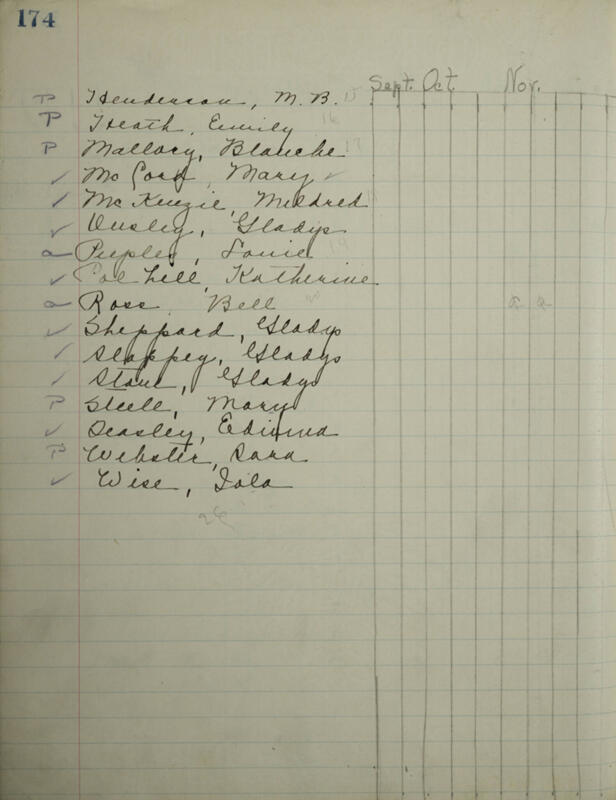 174
Sept. Oct Nov.
P Henderson, M. B. 15
P Heath, Emily 16
P Mallory, Blanche 17
✓ McCord, Mary ✓
✓ McKenzie, Mildred
✓ Ousley, Gladys
a Peeples, Louie 19
✓ Pol hill, Katherine
a Ross, Bell 20 a a
✓ Sheppard, Gladys
✓ Slappey, Gladys
✓ Stone, Gladys
P Steele, Mary
✓ Seasley, Edwina
P Webster, Sara
✓ Wise, Iola
26